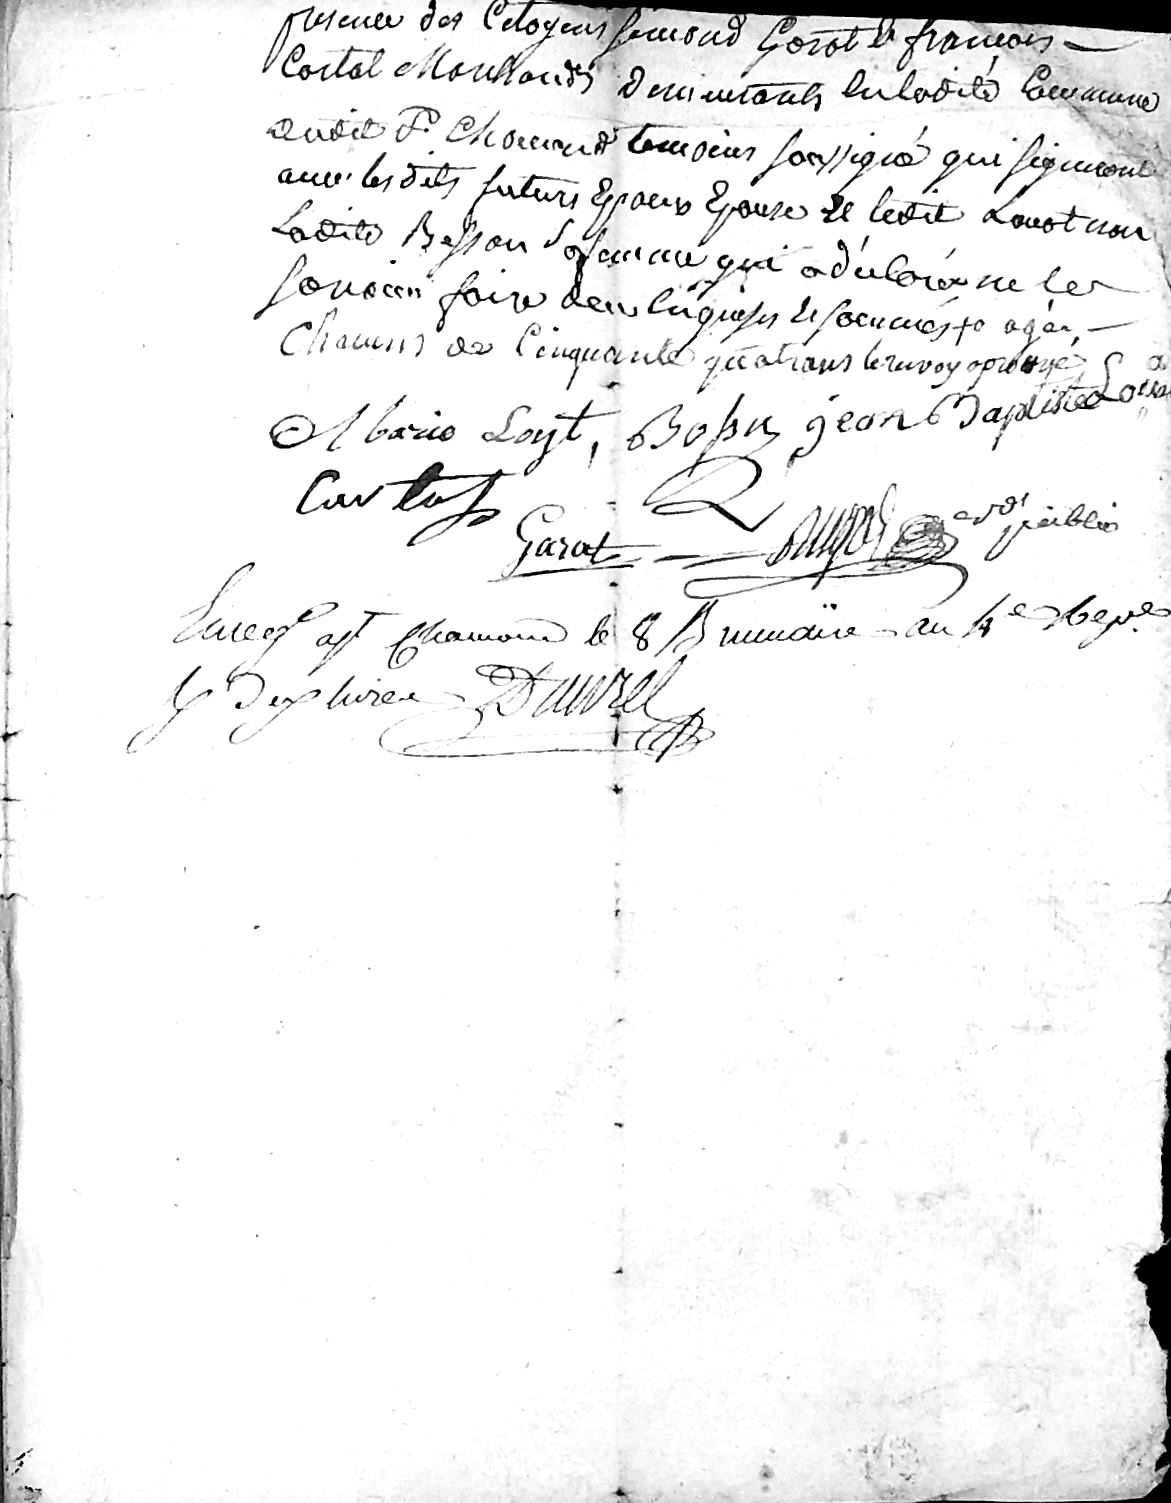 presence des Citoyens Simond Garat & francois
Costal Marchands demeurants en ladite Commune
dudit St. Chamond temoins soussigné qui signeront
avec lesdits futurs Epoux Epouse et ledit Louot non
ladite Besson sa femme qui a déclaré ne le
savoir faire de ce enquises et sommés + agée
Chacuns de Cinquante quatrans le renvoy aprouvé
Marie Loyt, Besson jean Baptiste
Costal
Garat not. public
Enreg. a st Chamond le 8 Brumaire an 4e
Dauzel